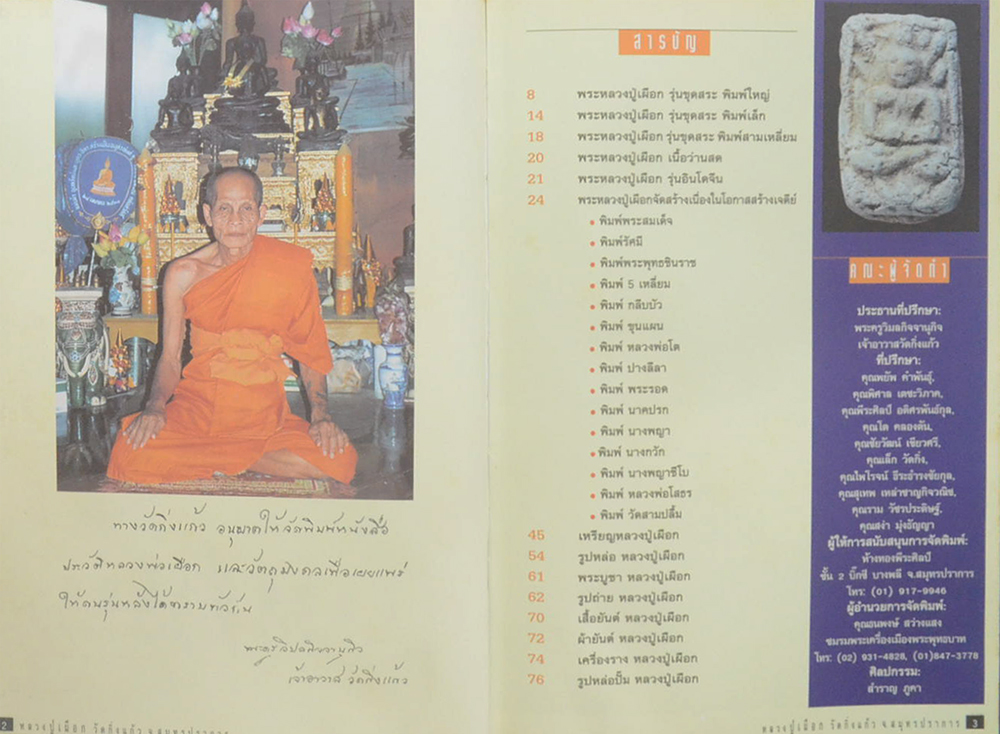 ทางวัดกิ่งแก้ว อนุญาตให้จัดพิมพ์หนังสือ
ประวัติหลวงพ่อเผือก และวัตถุมงคลเพื่อเผยแพร่
ให้คนรุ่นหลังได้ทราบทั่วกัน
เจ้าอาวาส วัดกิ่งแก้ว
2 หลวงปู่เผือก วัดกิ่งแก้ว จ.สมุทรปราการ
สารบัญ
8 พระหลวงปู่เผือก รุ่นขุดสระ พิมพ์ใหญ่
14 พระหลวงปู่เผือก รุ่นขุดสระ พิมพ์เล็ก
18 พระหลวงปู่เผือก รุ่นขุดสระ พิมพ์สามเหลี่ยม
20 พระหลวงปู่เผือก เนื้อว่านสด
21 พระหลวงปู่เผือก รุ่นอินโดจีน
24 พระหลวงปู่เผือกจัดสร้างเนื่องในโอกาสสร้างเจดีย์
• พิมพ์พระสมเด็จ
• พิมพ์รัศมี
• พิมพ์พระพุทธชินราช
• พิมพ์ 5 เหลี่ยม
• พิมพ์ กลีบบัว
• พิมพ์ ขุนแผน
• พิมพ์ หลวงพ่อโต
• พิมพ์ ปางลีลา
• พิมพ์ พระรอด
• พิมพ์ นาคปรก
• พิมพ์ นางพญา
• พิมพ์ นางกวัก
• พิมพ์ นางพญาชีโบ
• พิมพ์ หลวงพ่อโสธร
• พิมพ์ วัดสามปลื้ม
45 เหรียญหลวงปู่เผือก
54 รูปหล่อ หลวงปู่เผือก
61 พระบูชา หลวงปู่เผือก
62 รูปถ่าย หลวงปู่เผือก
70 เสื้อยันต์ หลวงปู่เผือก
72 ผ้ายันต์ หลวงปู่เผือก
74 เครื่องราง หลวงปู่เผือก
76 รูปหล่อปั๊ม หลวงปู่เผือก
คณะผู้จัดทำ
ประธานที่ปรึกษา:
พระครูวิมลกิจจานุกิจ
เจ้าอาวาสวัดกิ่งแก้ว
ที่ปรึกษา:
คุณพยัพ คำพันธุ์,
คุณพิศาล เตชะวิภาค,
คุณพีระศิลป์ อดิศรพันธ์กุล,
คุณใด คลองตัน,
คุณชัยวัฒน์ เขียวศรี,
คุณเล็ก วัดกิ่ง,
คุณไพโรจน์ ธีระธำรงชัยกุล,
คุณสุเทพ เหล่าชาญกิจวณิช,
คุณราม วัชรประดิษฐ์,
คุณสง่า มุ่งธัญญา
ผู้ให้การสนับสนุนการจัดพิมพ์:
ห้างทองพีระศิลป์
ชั้น 2 บิ๊กซี บางพลี จ.สมุทรปราการ
โทร: (01) 917-9946
ผู้อำนวยการจัดพิมพ์:
คุณธนพงษ์ สว่างแสง
ชมรมพระเครื่องเมืองพระพุทธบาท
โทร: (02) 931-4828, (01)847-3778
ศิลปกรรม:
สำราญ ภูคา
หลวงปู่เผือก วัดกิ่งแก้ว จ.สมุทรปราการ 3